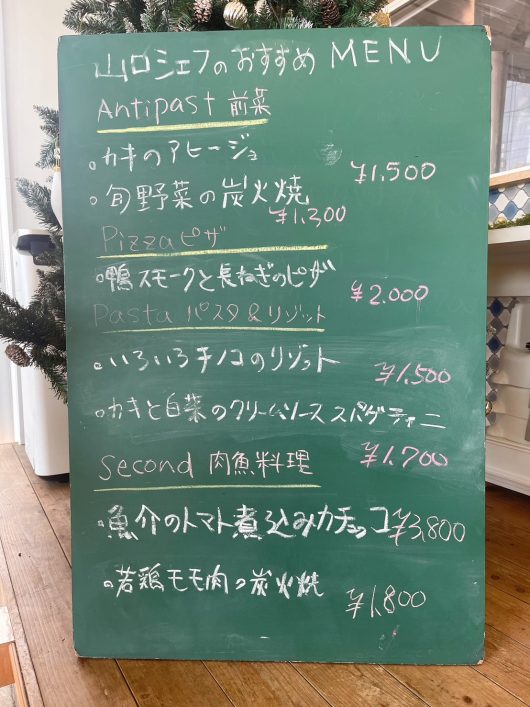 山口シェフのおすすめ MENU
Antipast 前菜
。カキのアヒージョ ¥1,500
。旬野菜の炭火焼 ¥1,300
Pizza ピザ
。鴨スモークと長ねぎのピザ ¥2.000
Pasta パスタ&リゾット
。いろいろキノコのリゾット ¥1,500
。カキと白菜のクリームソース スパゲティーニ ¥1,700
Second 肉魚料理
。魚介のトマト煮込みカチュッコ ¥3,800
。若鶏モモ肉の炭火焼 ¥1,800